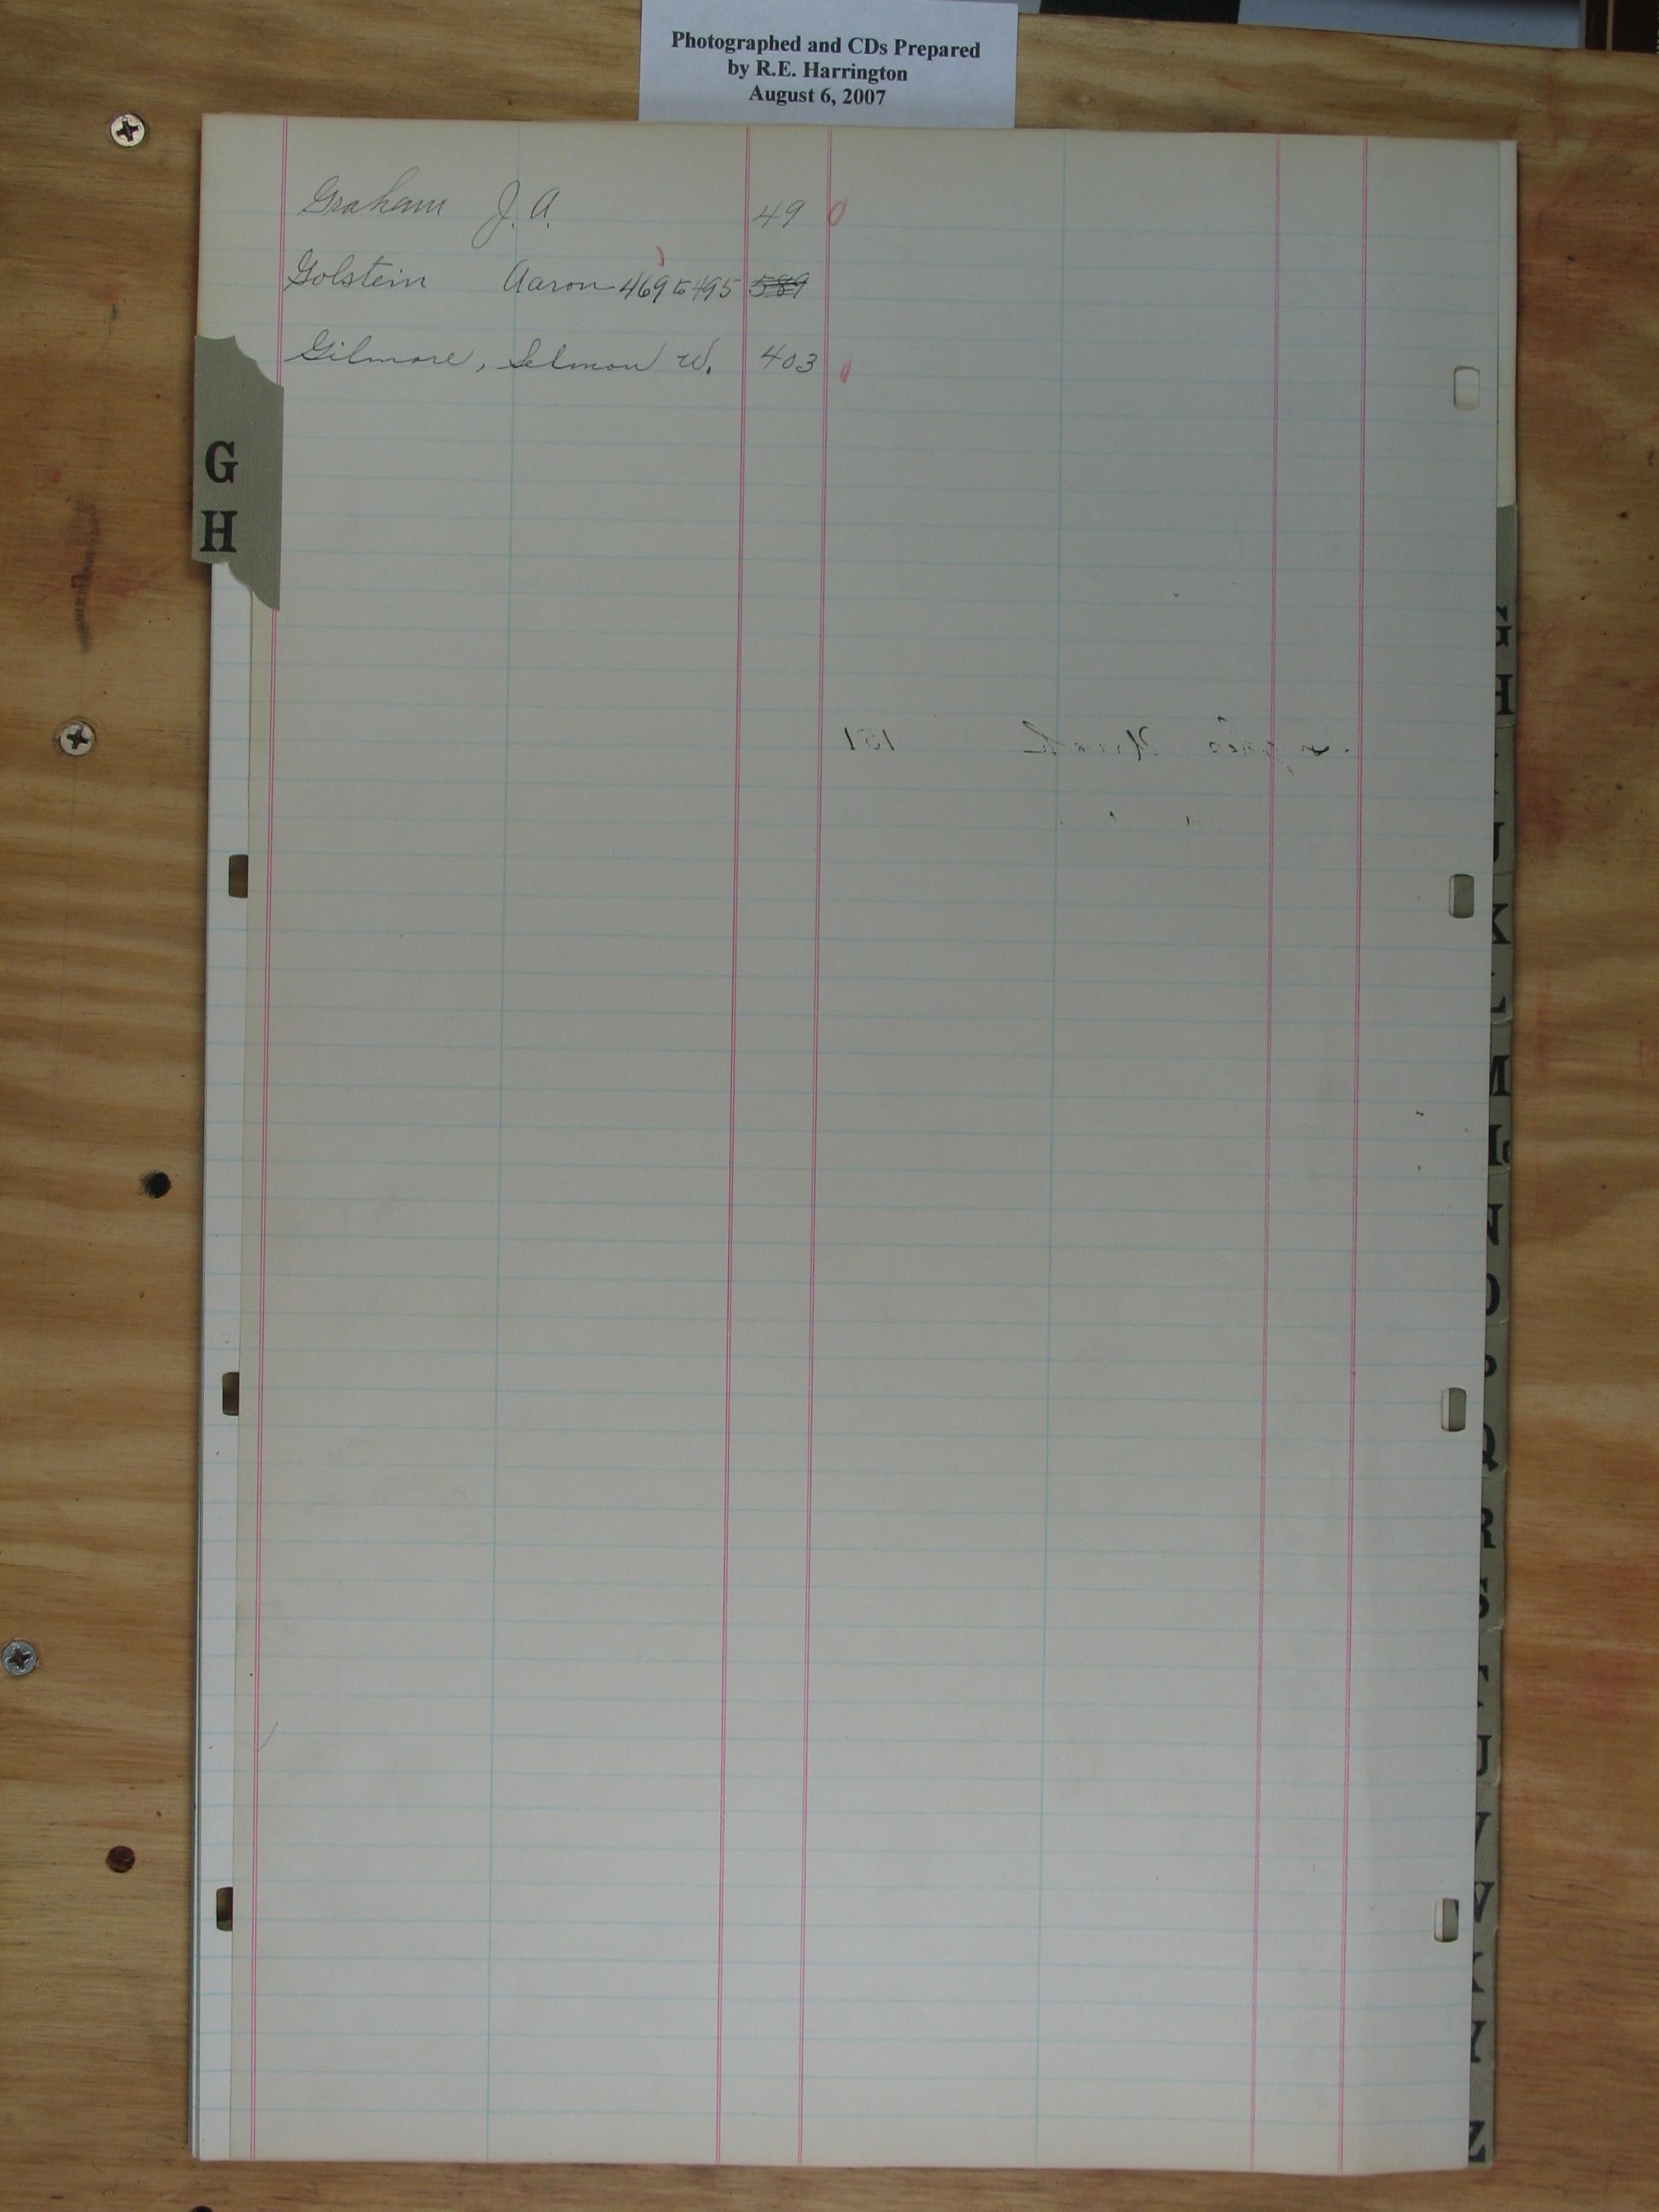 Photographed and CDs Prepared
by R.E. Harrington
August 6, 2007
Graham J. A. 49
Golstein Aaron 469 to 495 589
Gilmore, Selmon W. 403
G
H
G
H
J
K
L
M
Mc
N
O
P
Q
R
S
T
U
V
W
X
Y
Z
151